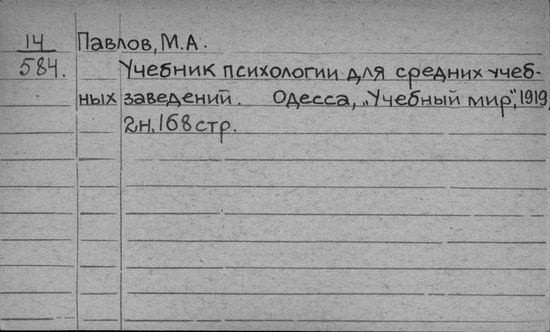 14 Павлов, М.А.
584. Учебник психологии для средних учеб-
ных заведений. Одесса, „Учебный мир", 1919,
2н. 168 стр.